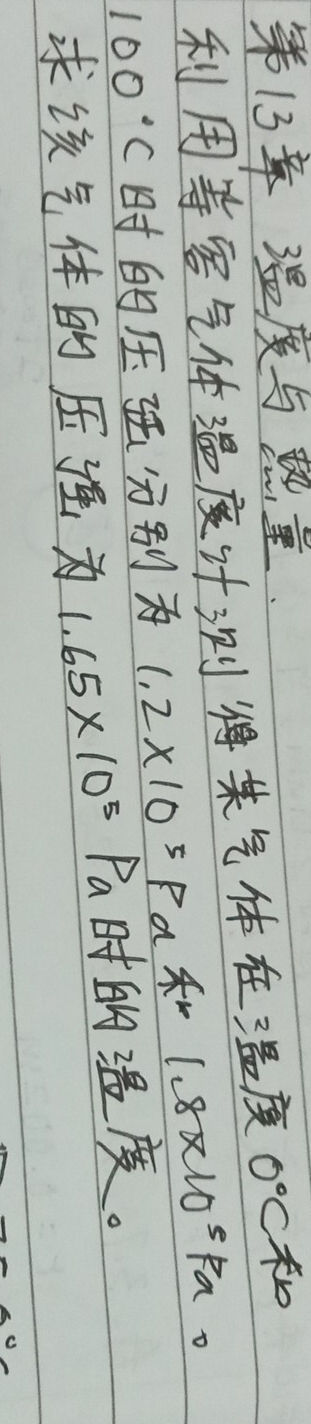 第13章 温度与热量
利用等容气体温度计测得某气体在温度0°C和
100°C时的压强分别为1.2×10⁵Pa和1.8×10⁵Pa。
求该气体的压强为1.65×10⁵Pa时的温度。